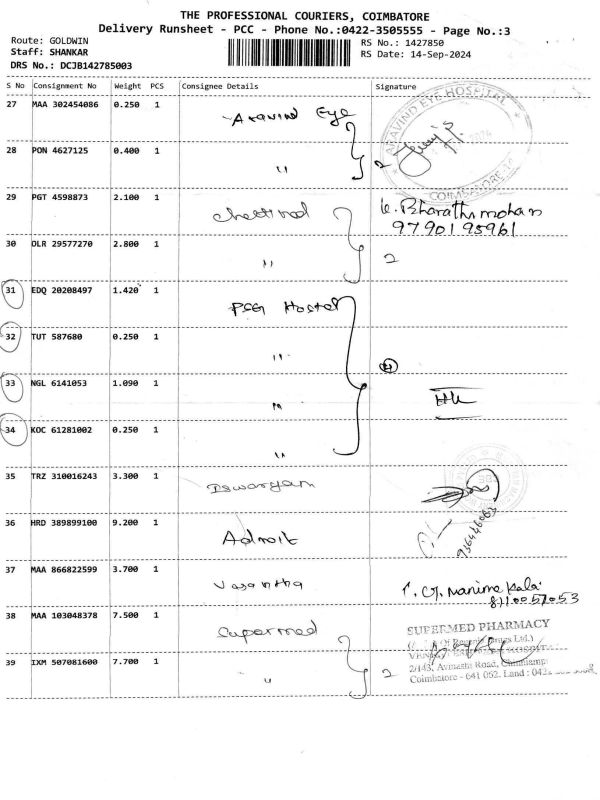 THE PROFESSIONAL COURIERS, COIMBATORE
Delivery Runsheet - PCC - Phone No.:0422-3505555 - Page No.:3
Route: GOLDWIN RS No.: 1427850
Staff: SHANKAR RS Date: 14-Sep-2024
DRS No.: DCJB142785003
S No Consignment No Weight PCS Consignee Details Signature
27 MAA 302454086 0.250 1 Aravind Eye
ARAVIND EYE HOSPITAL
COIMBATORE
28 PON 4627125 0.400 1 " 2
29 PGT 4598873 2.100 1 Chettinad K. Bharathimohan
9790195961
30 DLR 29577270 2.800 1 " 2
31 EDQ 20208497 1.420 1 PSG Hostel
32 TUT 587680 0.250 1 " 4
33 NGL 6141053 1.090 1 "
34 KOC 61281002 0.250 1 "
35 TRZ 310016243 3.300 1 Iswaryam
36 HRD 389899100 9.200 1 Adroit
37 MAA 866822599 3.700 1 Vasantha
8110057053
38 MAA 103048378 7.500 1 Supermed
SUPERMED PHARMACY
39 IXM 507081600 7.700 1 " 2
2/143, Avinashi Road,
Coimbatore - 641 062. Land :